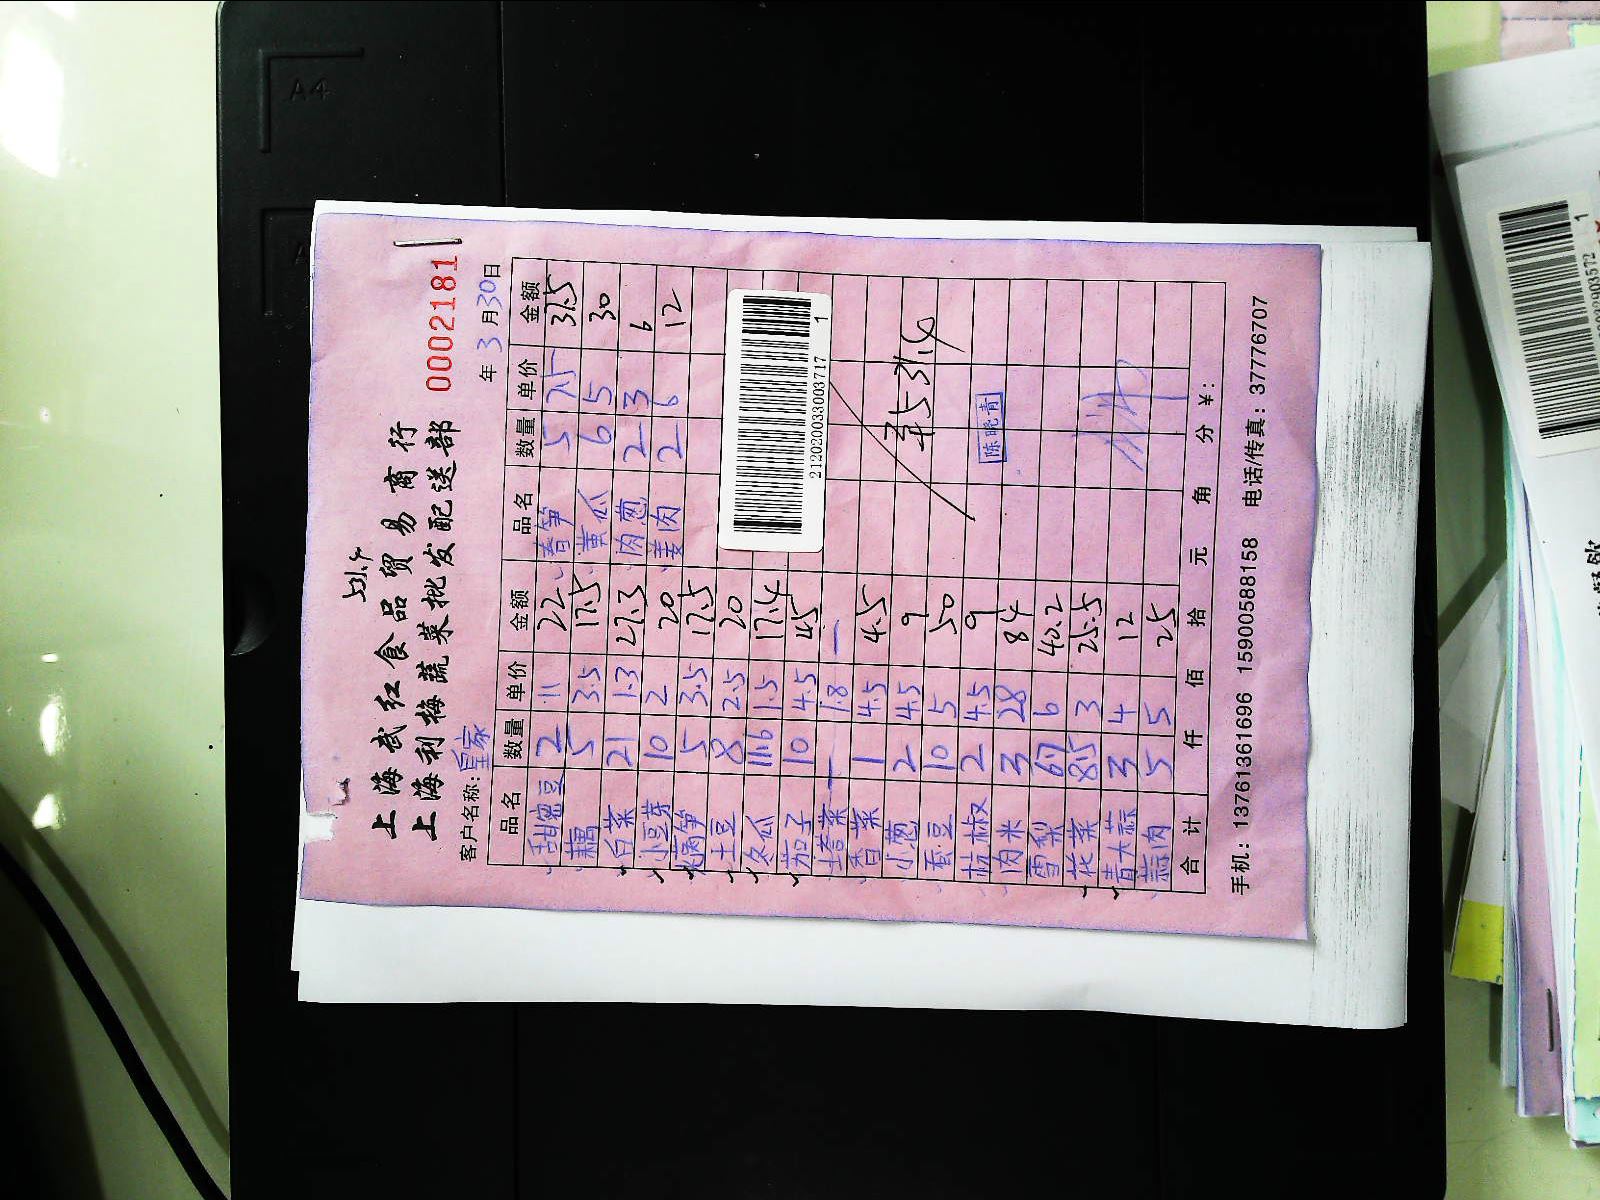 531.4
上海武红食品贸易商行
上海利梅蔬菜批发配送部
0002181
客户名称: 皇家 年 3 月 30 日
品名 数量 单价 金额 品名 数量 单价 金额
甜蜜豆 2 11 22 春笋 5 7.5 37.5
藕 5 3.5 17.5 黄瓜 6 5 30
白菜 21 1.3 27.3 肉葱 2 3 6
小豆芽 10 2 20 姜肉 2 6 12
莴笋 5 3.5 17.5
土豆 8 2.5 20
冬瓜 11.6 1.5 17.4
茄子 10 4.5 45
塔菜 — 1.8 —
香菜 1 4.5 4.5
小葱 2 4.5 9
蚕豆 10 5 50
杭椒 2 4.5 9
肉米 3 28 84
雪梨 6.7 6 40.2
花菜 8.5 3 25.5
青大蒜 3 4 12
蒜肉 5 5 25
2120200330003717
1
531.4
陈晓青
合计 仟 佰 拾 元 角 分 ¥:
手机: 13761361696 15900588158 电话/传真: 37776707
A4
1